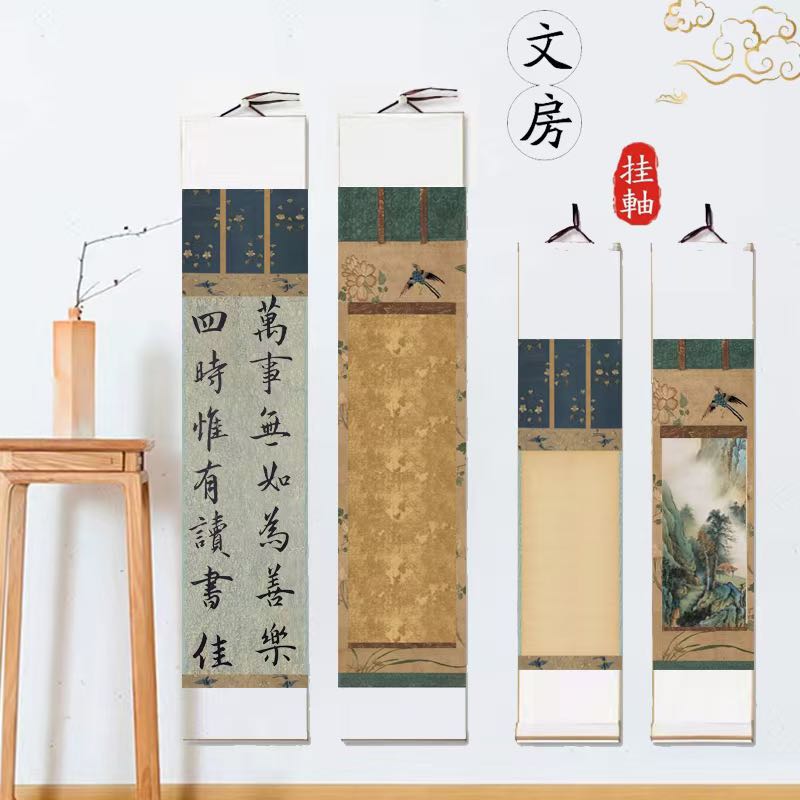 文房
挂軸
萬事無如為善樂
四時惟有讀書佳